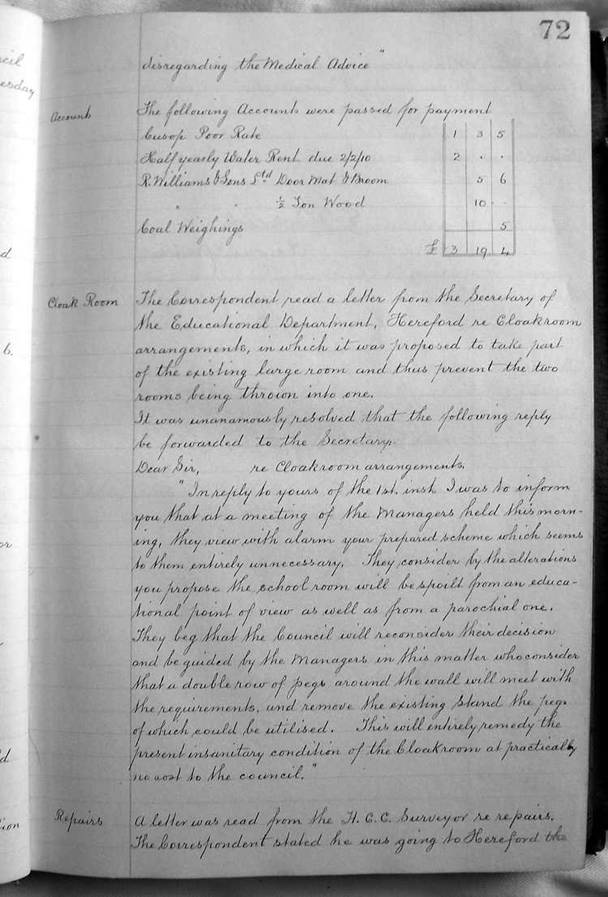 72
disregarding the Medical Advice"
Accounts The following Accounts were passed for payment
Cusop Poor Rate 1 3 5
Half yearly Water Rent due 2/2/10 2 . .
R. Williams & Sons Ltd Door Mat & Broom 5 6
" " ½ Ton Wood 10 .
Coal Weighings 5
£ 3 19 4
Cloak Room The Correspondent read a letter from the Secretary of
the Educational Department, Hereford re Cloakroom
arrangements, in which it was proposed to take part
of the existing large room and thus prevent the two
rooms being thrown into one.
It was unanamously resolved that the following reply
be forwarded to the Secretary.
Dear Sir, re Cloakroom arrangements.
"In reply to yours of the 1st. inst I was to inform
you that at a meeting of the Managers held this morn-
ing, they view with alarm your prepared scheme which seems
to them entirely unnecessary. They consider by the alterations
you propose the school room will be spoilt from an educa-
tional point of view as well as from a parochial one.
They beg that the Council will reconsider their decision
and be guided by the Managers in this matter who consider
that a double row of pegs around the wall will meet with
the requirements, and remove the existing stand the pegs
of which could be utilised. This will entirely remedy the
present insanitary condition of the Cloakroom at practically
no cost to the council."
Repairs A letter was read from the H.C.C. Surveyor re repairs.
The Correspondent stated he was going to Hereford the